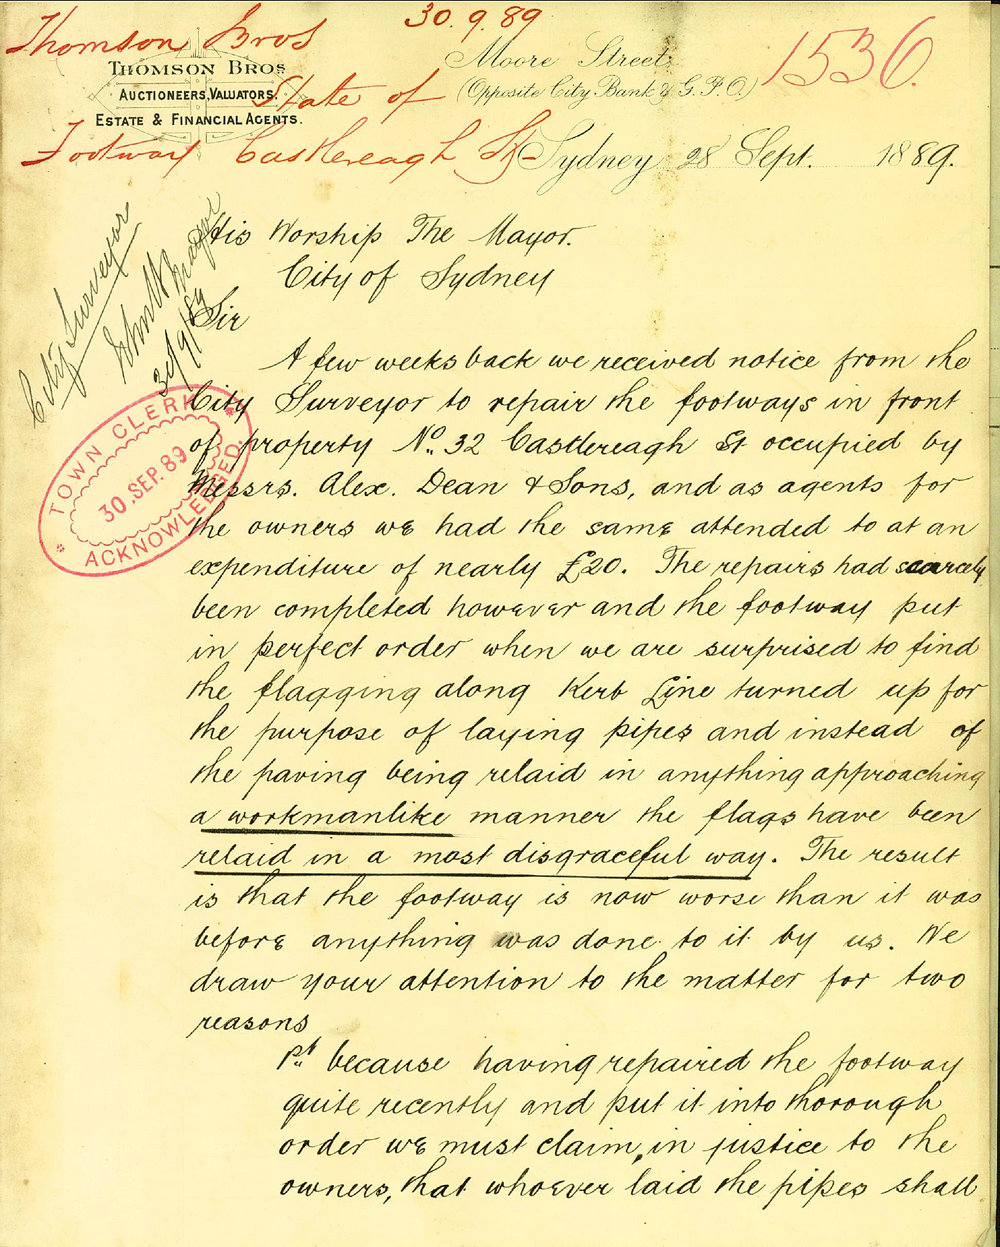 30.9.89
Thomson Bros
1536.
State of
Footway Castlereagh St
THOMSON BROS
AUCTIONEERS, VALUATORS.
ESTATE & FINANCIAL AGENTS.
Moore Street,
(Opposite City Bank & G.P.O.)
Sydney 28 Sept. 1889.
City Surveyor
Mayor
30/9/89
TOWN CLERK
30.SEP.89
ACKNOWLEDGED.
His Worship The Mayor.
City of Sydney
Sir
A few weeks back we received notice from the
City Surveyor to repair the footways in front
of property No. 32 Castlereagh St occupied by
Messrs. Alex. Dean & Sons, and as agents for
the owners we had the same attended to at an
expenditure of nearly £20. The repairs had scarcely
been completed however and the footway put
in perfect order when we are surprised to find
the flagging along Kerb Line turned up for
the purpose of laying pipes and instead of
the paving being relaid in anything approaching
a workmanlike manner the flags have been
relaid in a most disgraceful way. The result
is that the footway is now worse than it was
before anything was done to it by us. We
draw your attention to the matter for two
reasons
1st because having repaired the footway
quite recently and put it into thorough
order we must claim, in justice to the
owners, that whoever laid the pipes shall